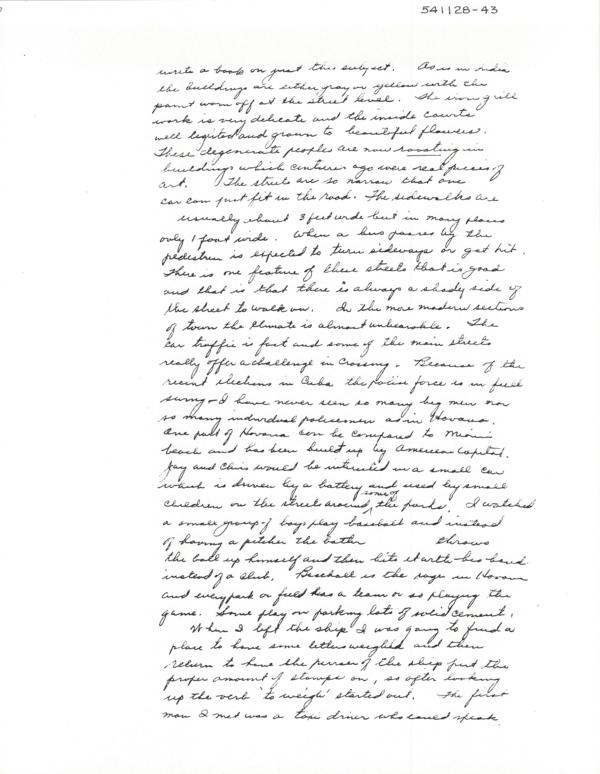 541128-43
write a book on just this subject. As is in India
the buildings are either gray or yellow with the
paint worn off at the street level. The iron grill
work is very delicate and the inside courts
well lighted and grown to beautiful flowers.
These degenerate peoples are now roosting in
buildings which centures ago were real pieces of
art. The streets are so narrow that one
car can just fit in the road. The sidewalks are
usually about 3 feet wide but in many places
only 1 foot wide. When a bus passes by the
pedestrien is expected to turn sideways or get hit.
There is one feature of these streets that is good
and that is that there is always a shady side of
the street to walk on. In the more modern sections
of town the climate is almost unbearable. The
car traffic is fast and some of the main streets
really offer a challenge in crossing. Because of the
recent elections in Cuba the police force is in full
swing - I have never seen so many big men nor
so many individual policemen as in Havana.
One part of Havana can be compared to Miami
beach and has been built up by American Capital.
Jay and Chris would be intrested in a small car
which is driven by a battery and used by small
children on the streets around some of the parks. I watched
a small group of boys play baseball and instead
of having a pitcher the batter throws
the ball up himself and then hits it with his hand
instead of a club. Baseball is the rage in Havana
and every park or field has a team or so playing the
game. Some play on parking lots of solid cement.
When I left the ship I was going to find a
place to have some letters weighed and then
return to have the purser of the ship put the
proper amount of stamps on, so after looking
up the verb 'to weigh' started out. The first
man I met was a taxi driver who could speak